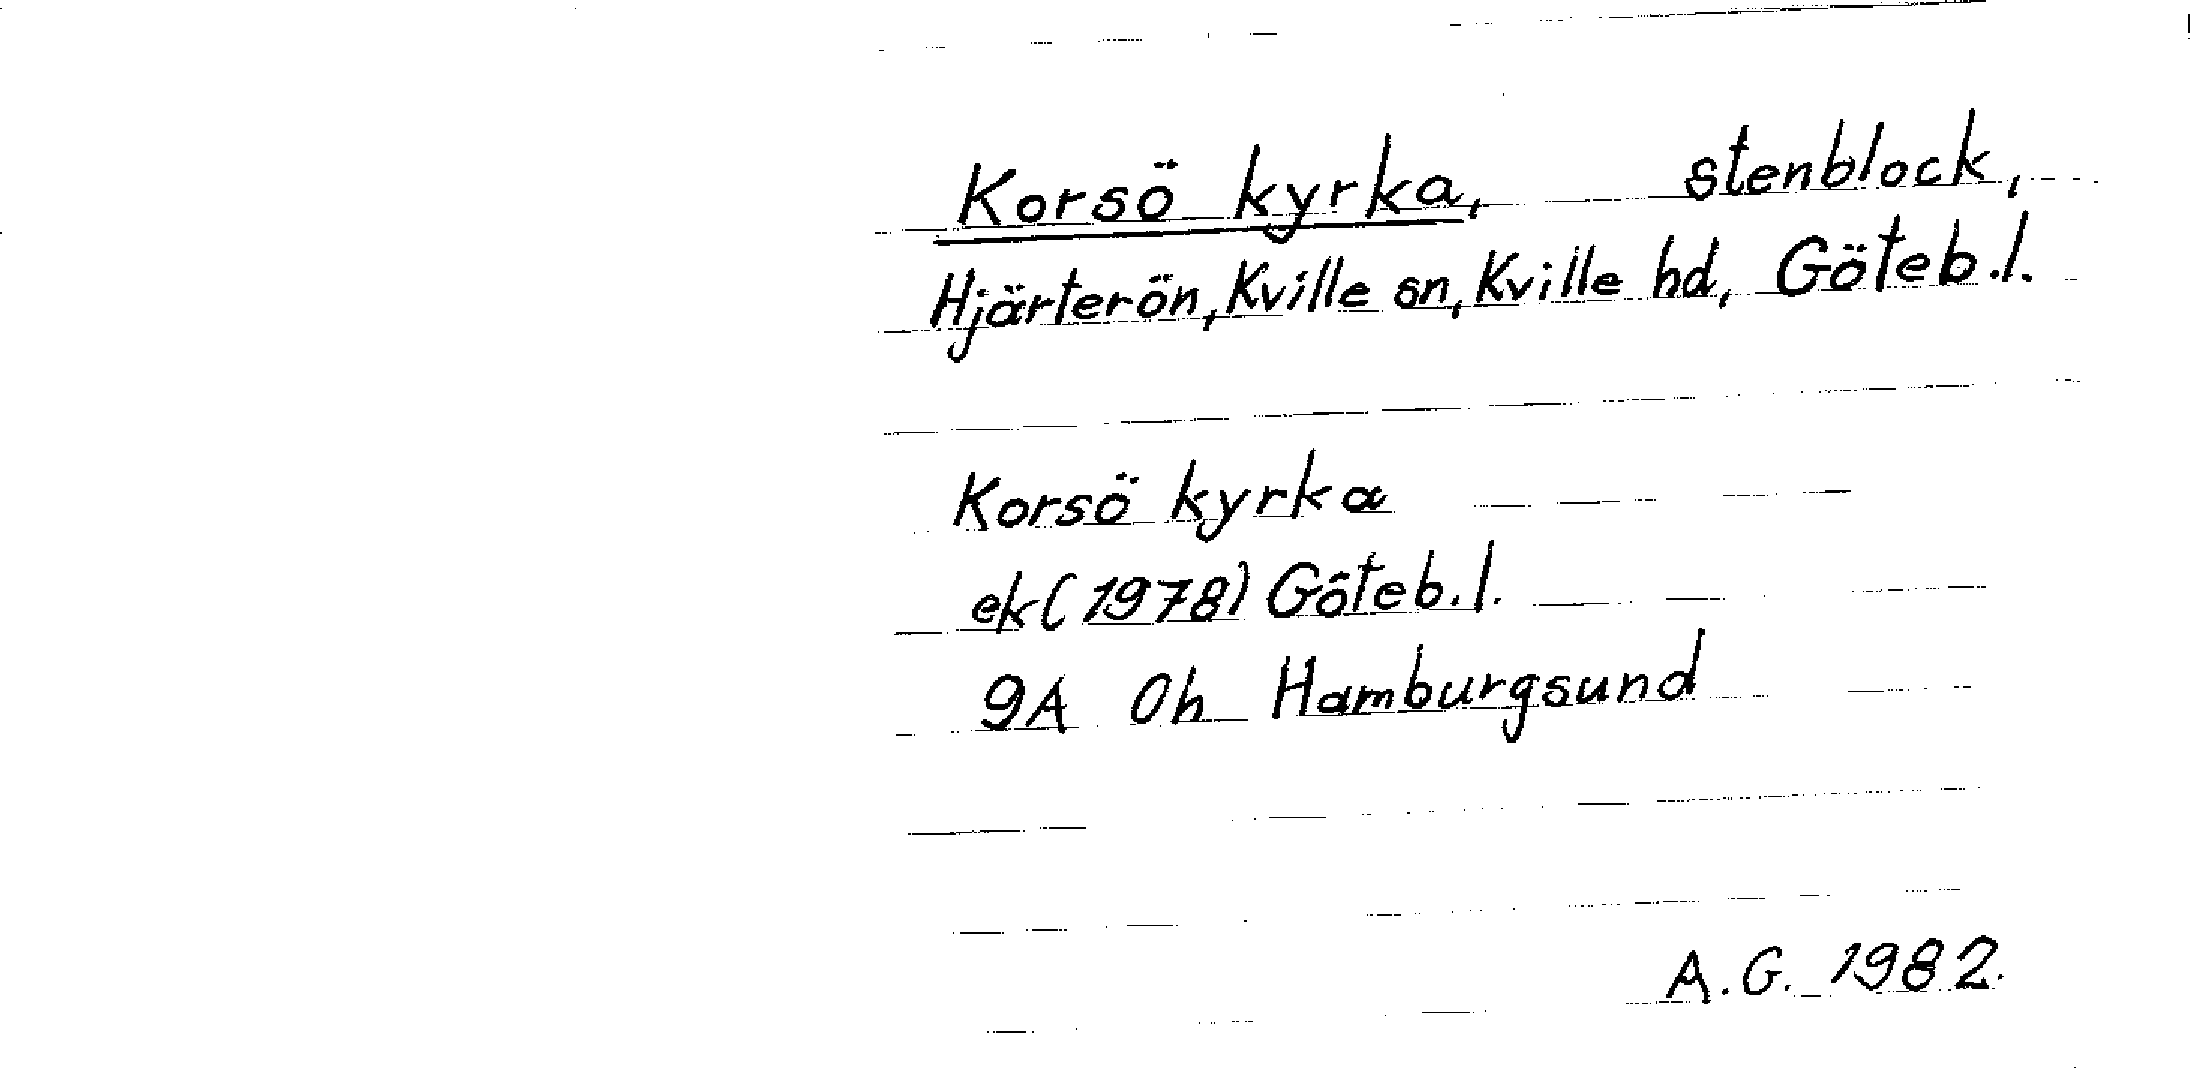 Korsö kyrka, stenblock,
Hjärterön, Kville sn, Kville hd, Göteb.l.
Korsö kyrka
ek (1978) Göteb.l.
9A 0h Hamburgsund
A.G. 1982.